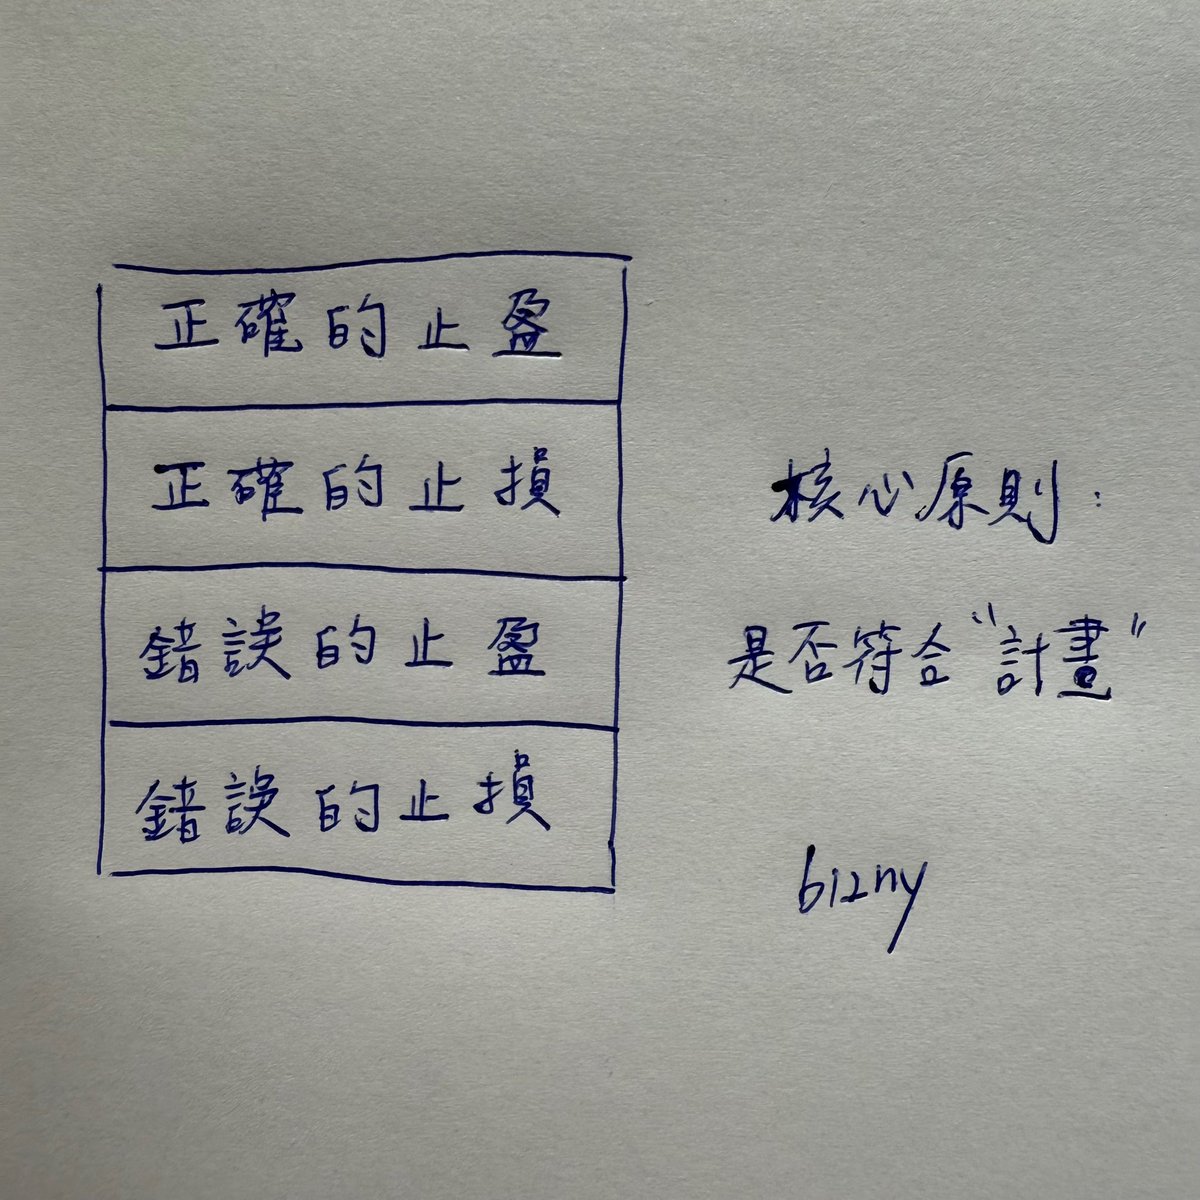 正確的止盈
正確的止損
錯誤的止盈
錯誤的止損
核心原則：
是否符合“計畫”
bizny